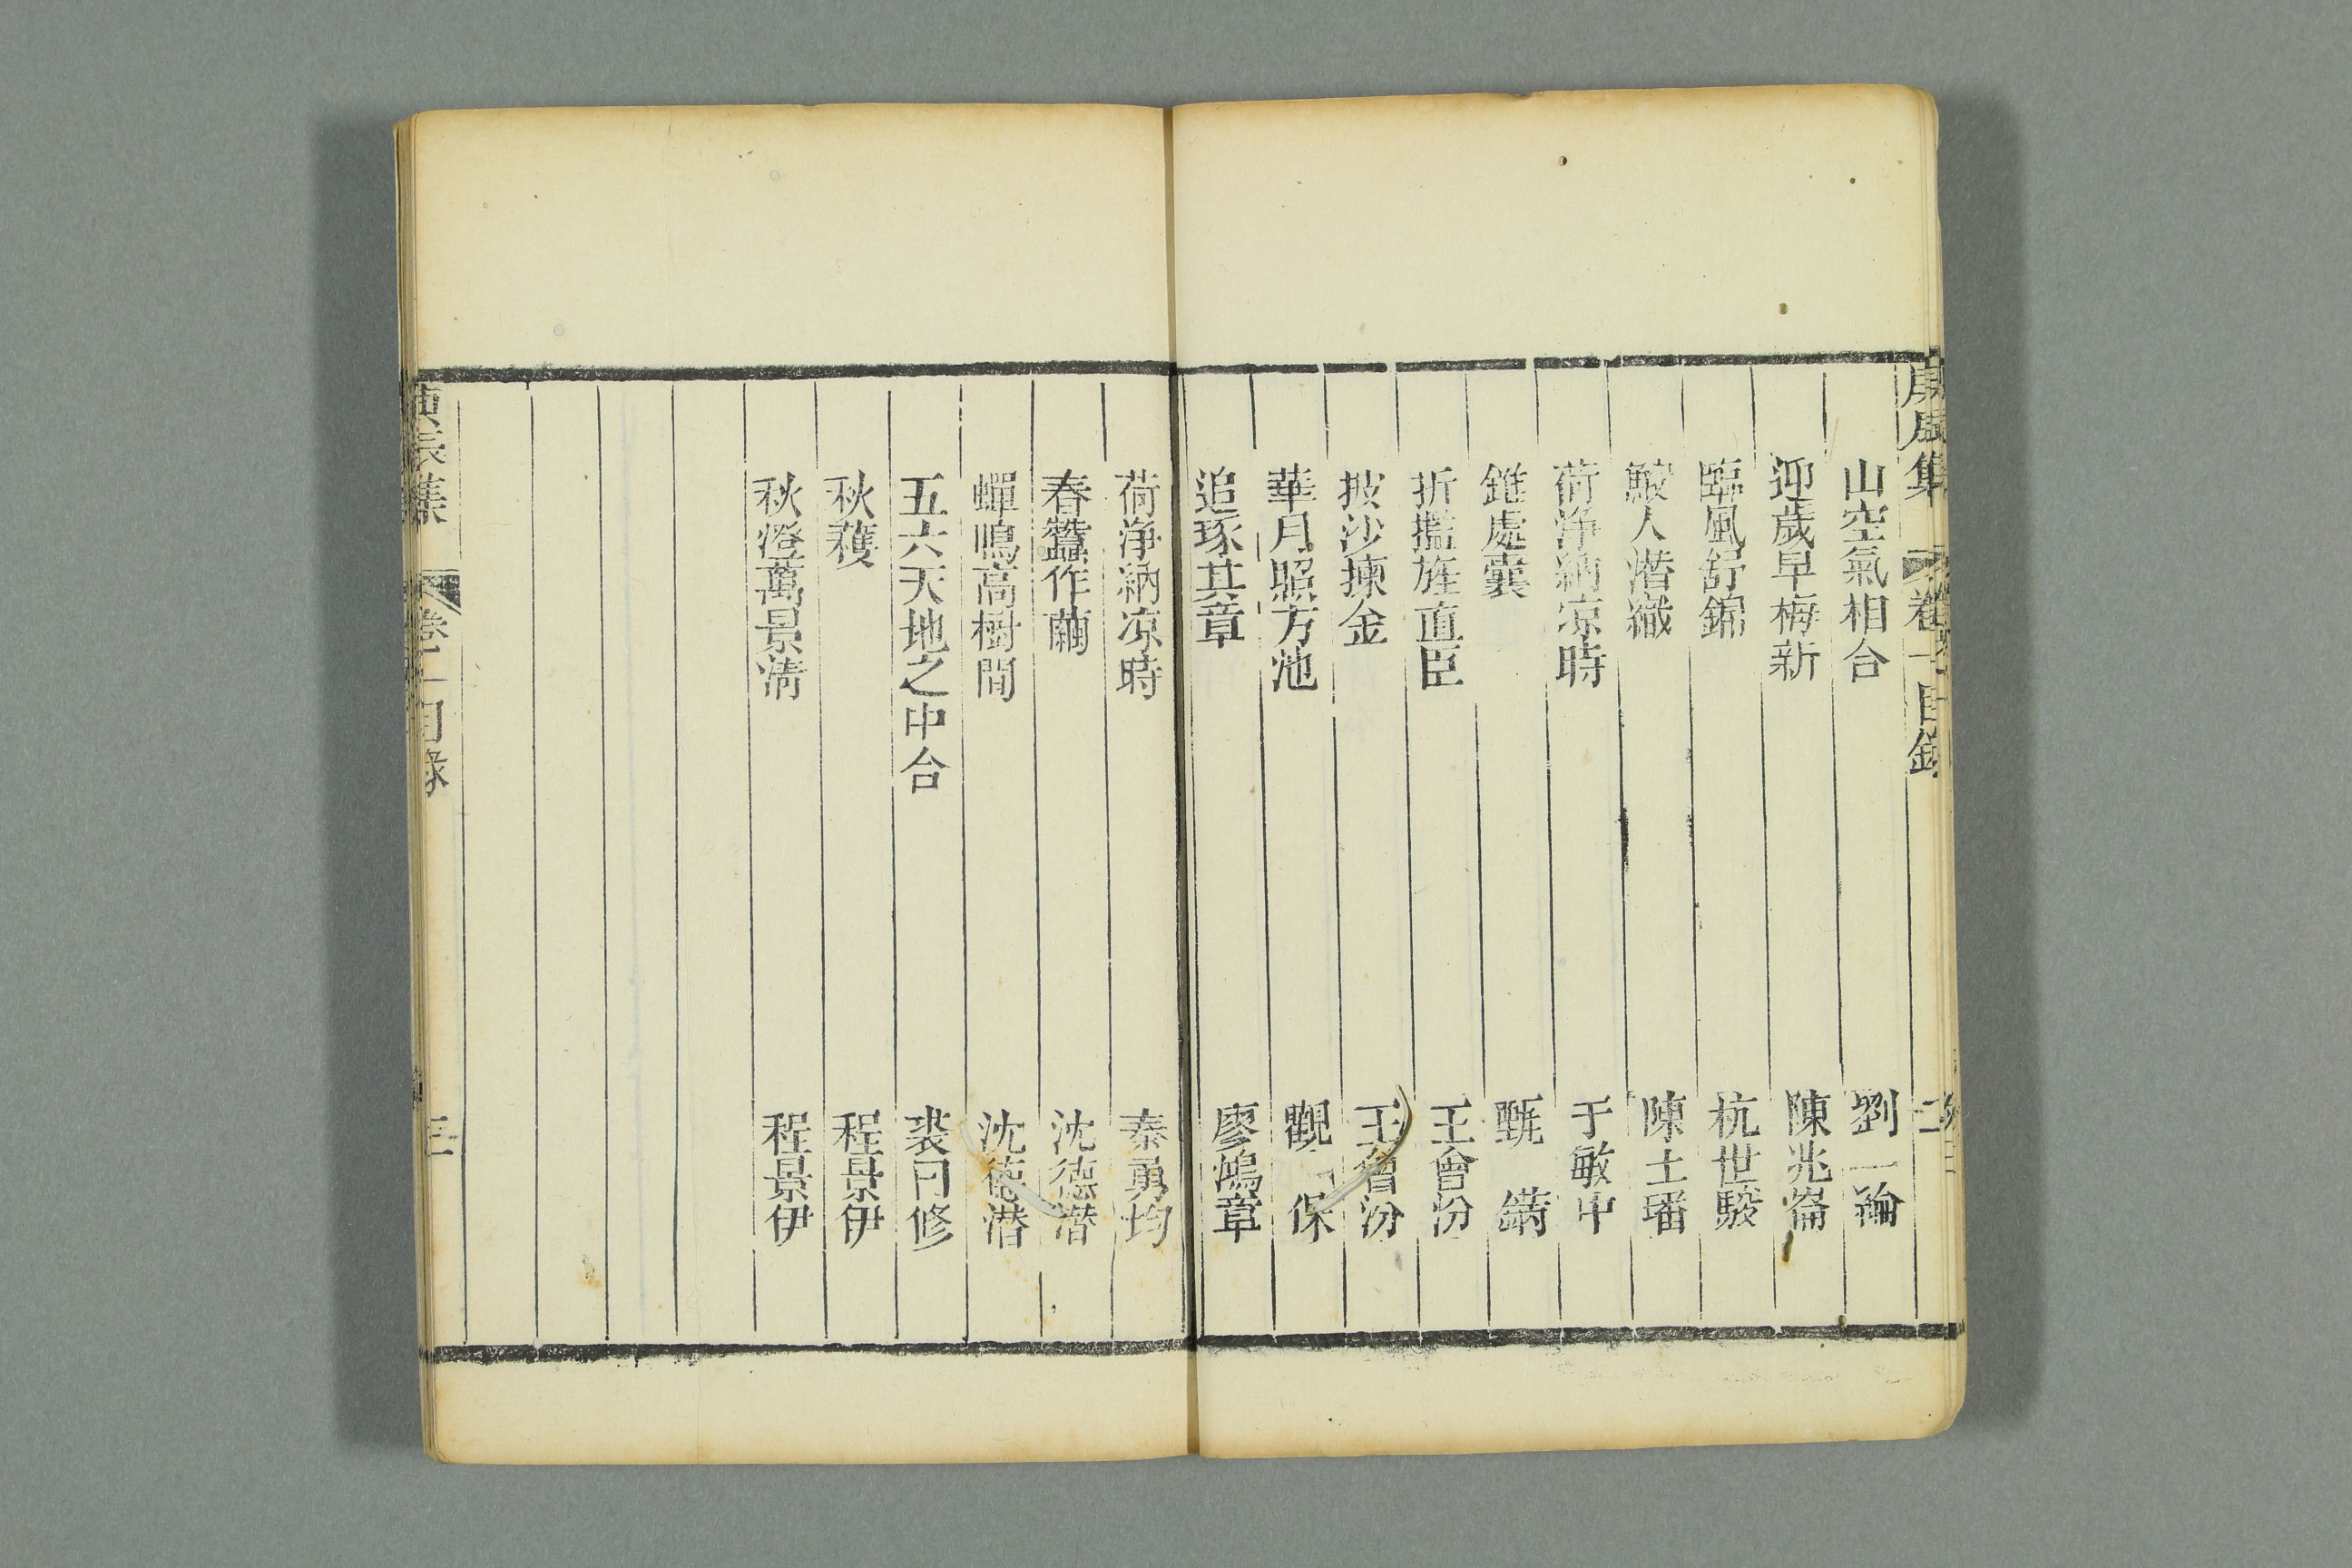 庚辰集 卷一目錄 二
山空氣相合 劉一倫
迎歲早梅新 陳兆崙
臨風舒錦 杭世駿
鮫人潛織 陳士璠
荷淨納凉時 于敏中
錐處囊 甄 鏻
折檻旌直臣 王會汾
披沙揀金 王會汾
華月照方池 觀 保
追琢其章 廖鴻章
荷淨納凉時 秦勇均
春蠶作繭 沈德潛
蟬鳴高樹間 沈德潛
五六天地之中合 裘曰修
秋穫 程景伊
秋澄萬景清 程景伊
庚辰集 卷二目錄 三